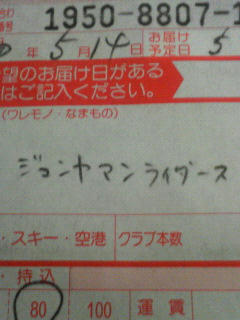 合わ
番号 1950-8807-1
年 5月14日 お届け予定日 5
望のお届け日がある
はご記入ください。
(ワレモノ・なまもの)
ジョンヤマンライダース
・スキー・空港 クラブ本数
持込
80 100 運賃